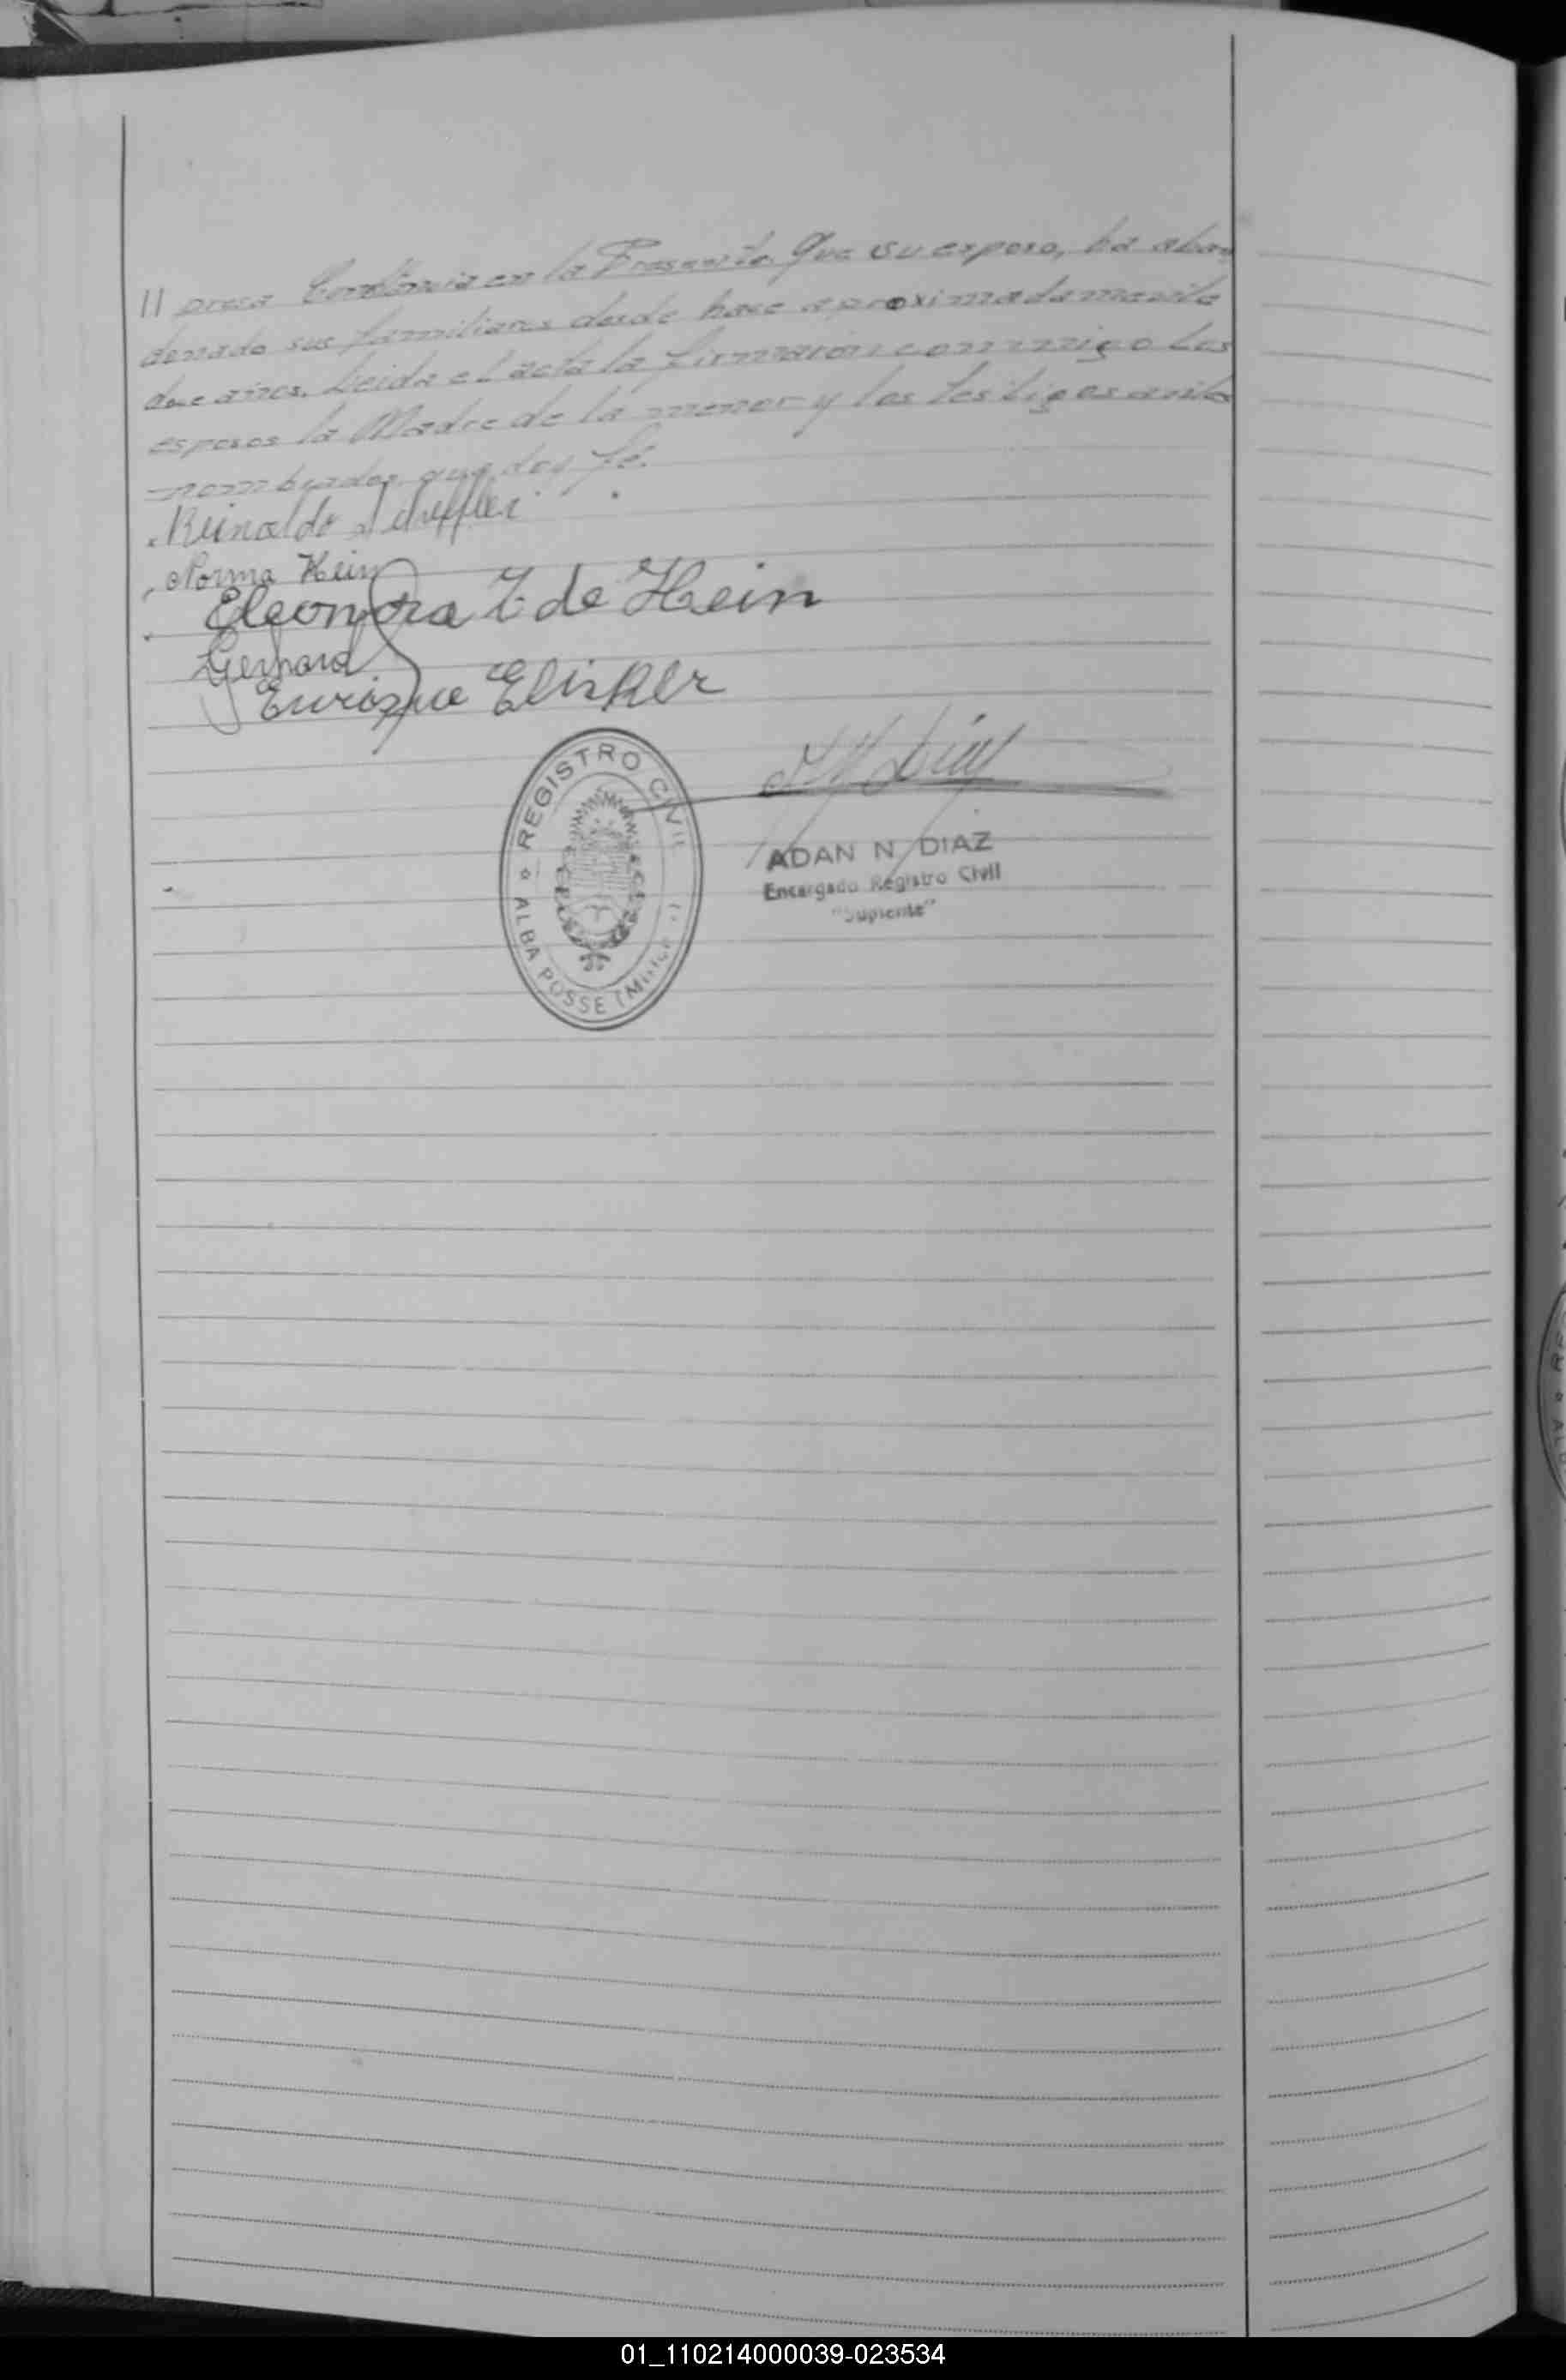 // presa Constancia en la Presente Que su esposo, ha aban
donado sus familiares desde hace aproximadamente
doce años. Leida el acta la firmaron conmigo los
esposos la Madre de la menor y los testigos ante
nombrados que doy fé.
Reinaldo
Norma Hein
Eleonora Z de Hein
Gerhard
Enrique Elisker
ADAN N. DIAZ
Encargado Registro Civil
"Suplente"
REGISTRO CIVIL
ALBA POSSE (Misiones)
01_110214000039-023534